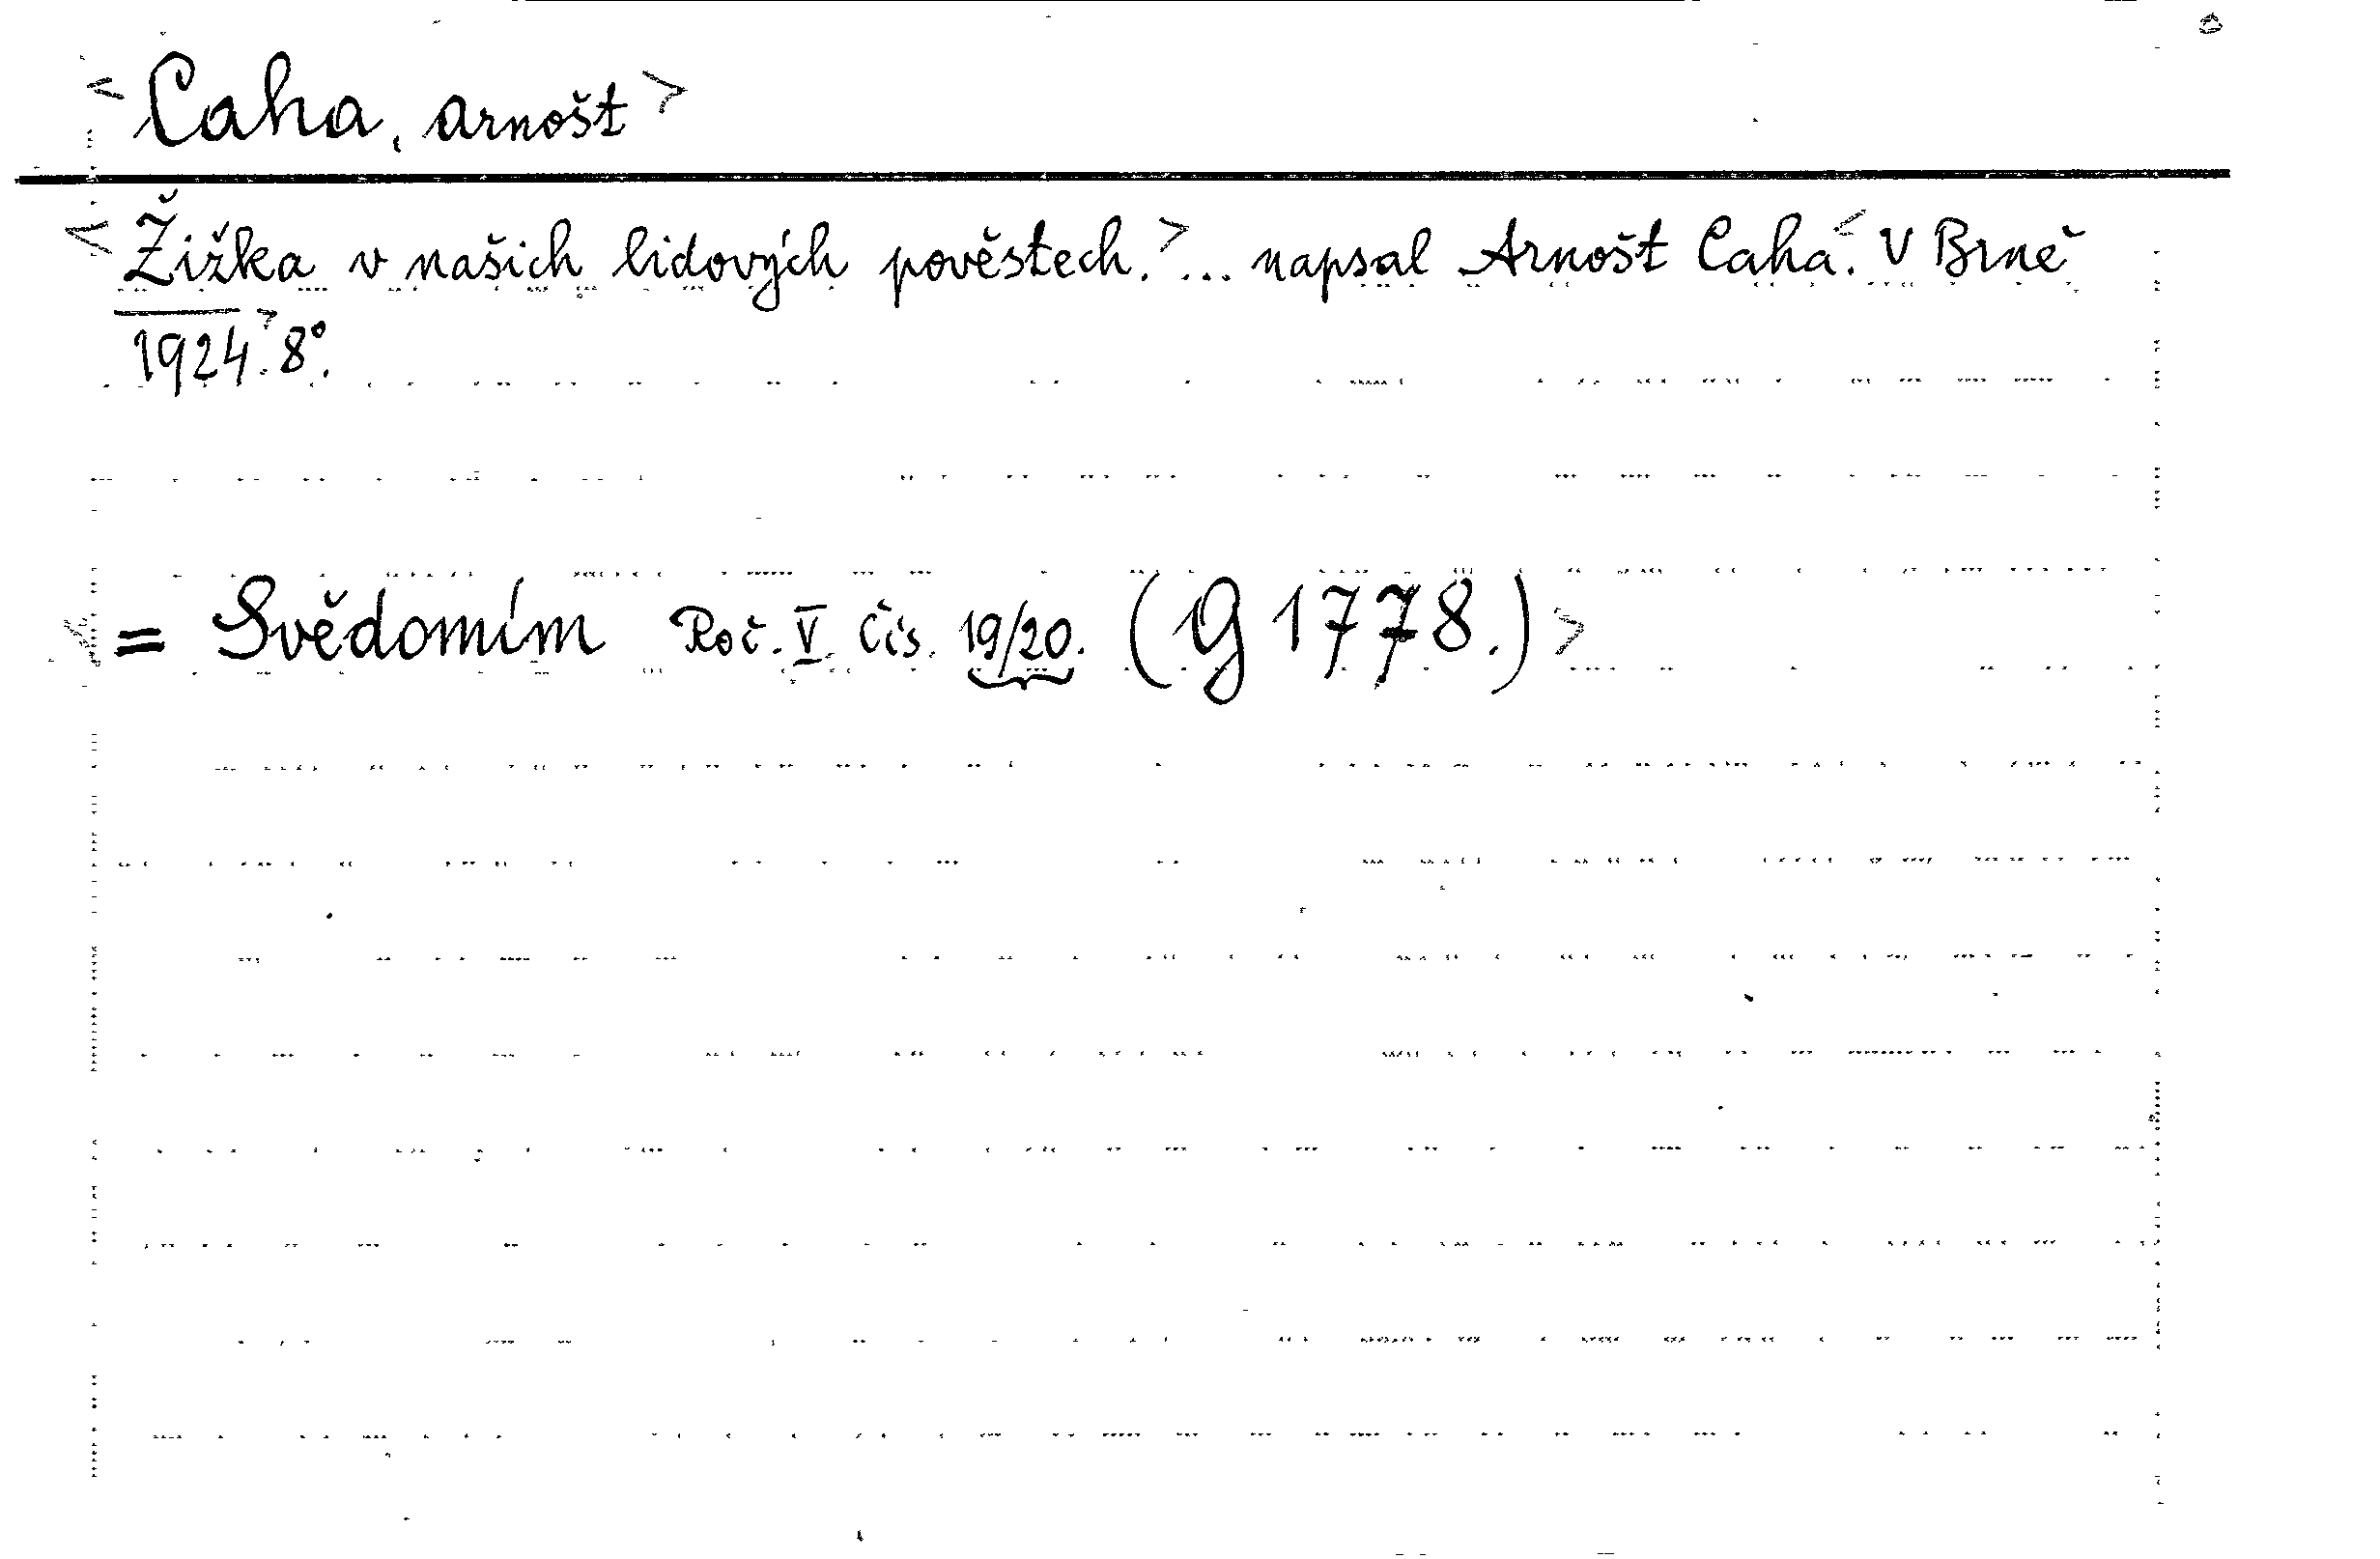 <Caha, Arnošt>
<Žižka v našich lidových pověstech.> ... napsal Arnošt Caha.< V Brně
1924.> 8°.
<= Svědomím Roč. V. Čís. 19/20. (G 1778.)>